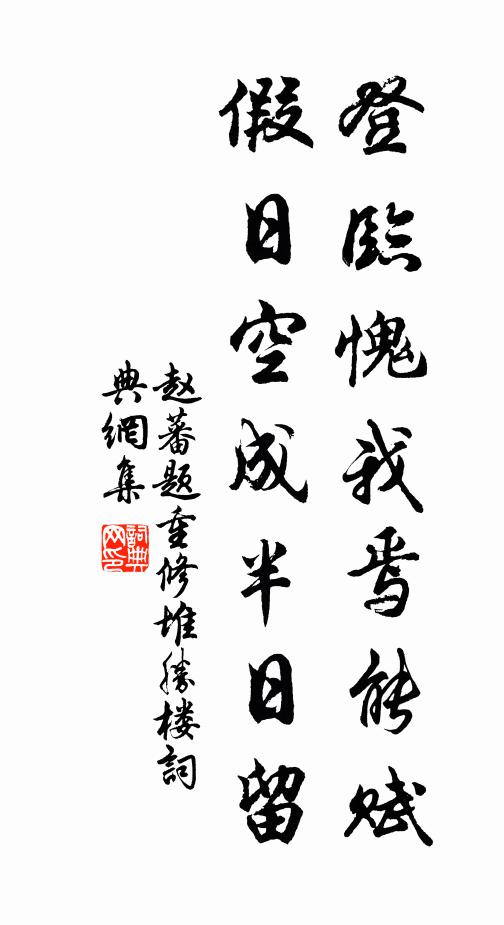 登臨愧我焉能赋
假日空成半日留
赵蕃题重修堆勝楼詞
典網集
詞典
网印